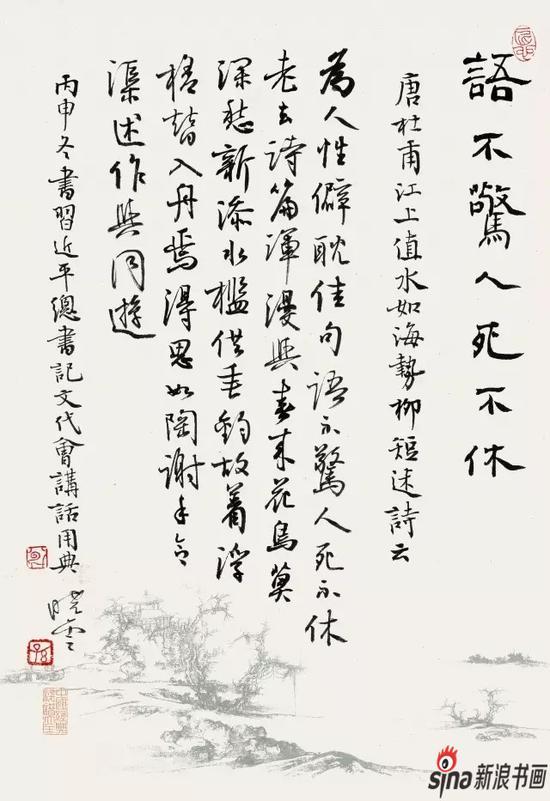 語不驚人死不休
唐杜甫江上值水如海勢聊短述詩云
為人性僻耽佳句語不驚人死不休
老去詩篇渾漫與春來花鳥莫
深愁新添水檻供垂釣故着浮
槎替入舟焉得思如陶謝手令
渠述作與同遊
丙申冬書習近平總書記文代會講話用典 曉雲
sina新浪书画